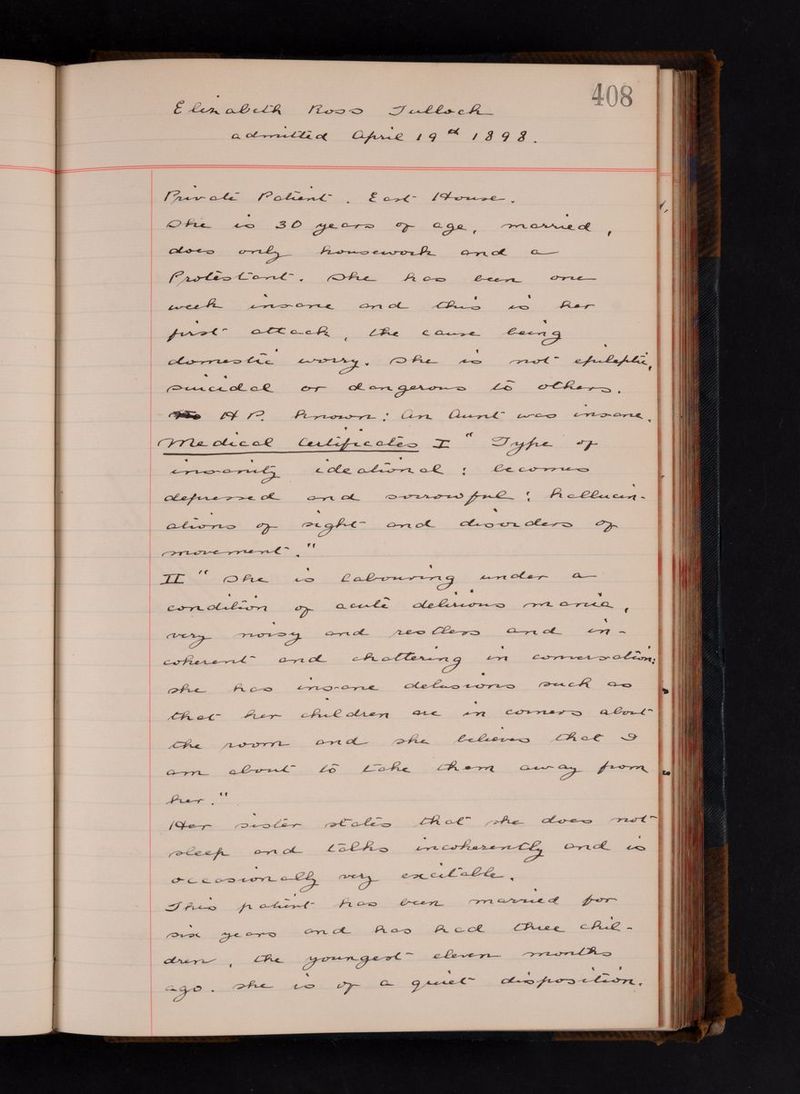 408
Elizabeth Ross Tulloch
admitted April 19th 1898.
Private Patient. East House.
She is 30 years of age, married,
does only housework and a
Protestant. She has been one
week insane and this is her
first attack, the cause being
domestic worry. She is not epileptic,
suicidal or dangerous to others.
H P. known: An Aunt was insane.
Medical Certificates I "Type of
insanity ideational; becomes
depressed and sorrowful; hallucin-
ations of sight and disorders of
movement."
II "She is labouring under a
condition of acute delirious mania,
very noisy and restless and in-
coherent and chattering in conversation;
she has insane delusions such as
that her children are in corners about
the room and she believes that I
am about to take them away from
her."
Her sister states that she does not
sleep and talks incoherently and is
occasionally very excitable.
This patient has been married for
six years and has had three chil-
dren, the youngest eleven months
ago. She is of a quiet disposition.